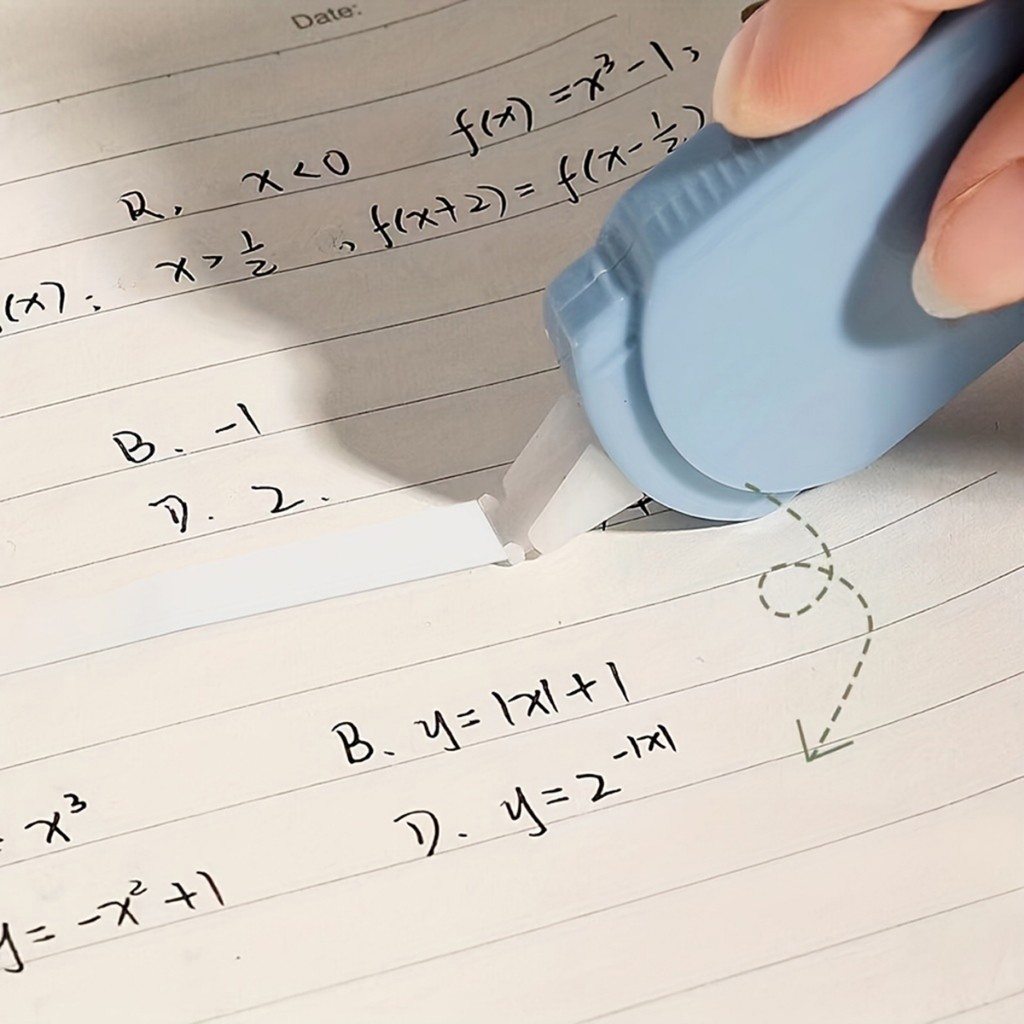 Date:
R, x<0 f(x) =x³-1,
(x): x>1/2, f(x+2)= f(x-1/2)
B. -1
D. 2.
B. y=|x|+1
= x³
D. y=2^-|x|
y= -x²+1